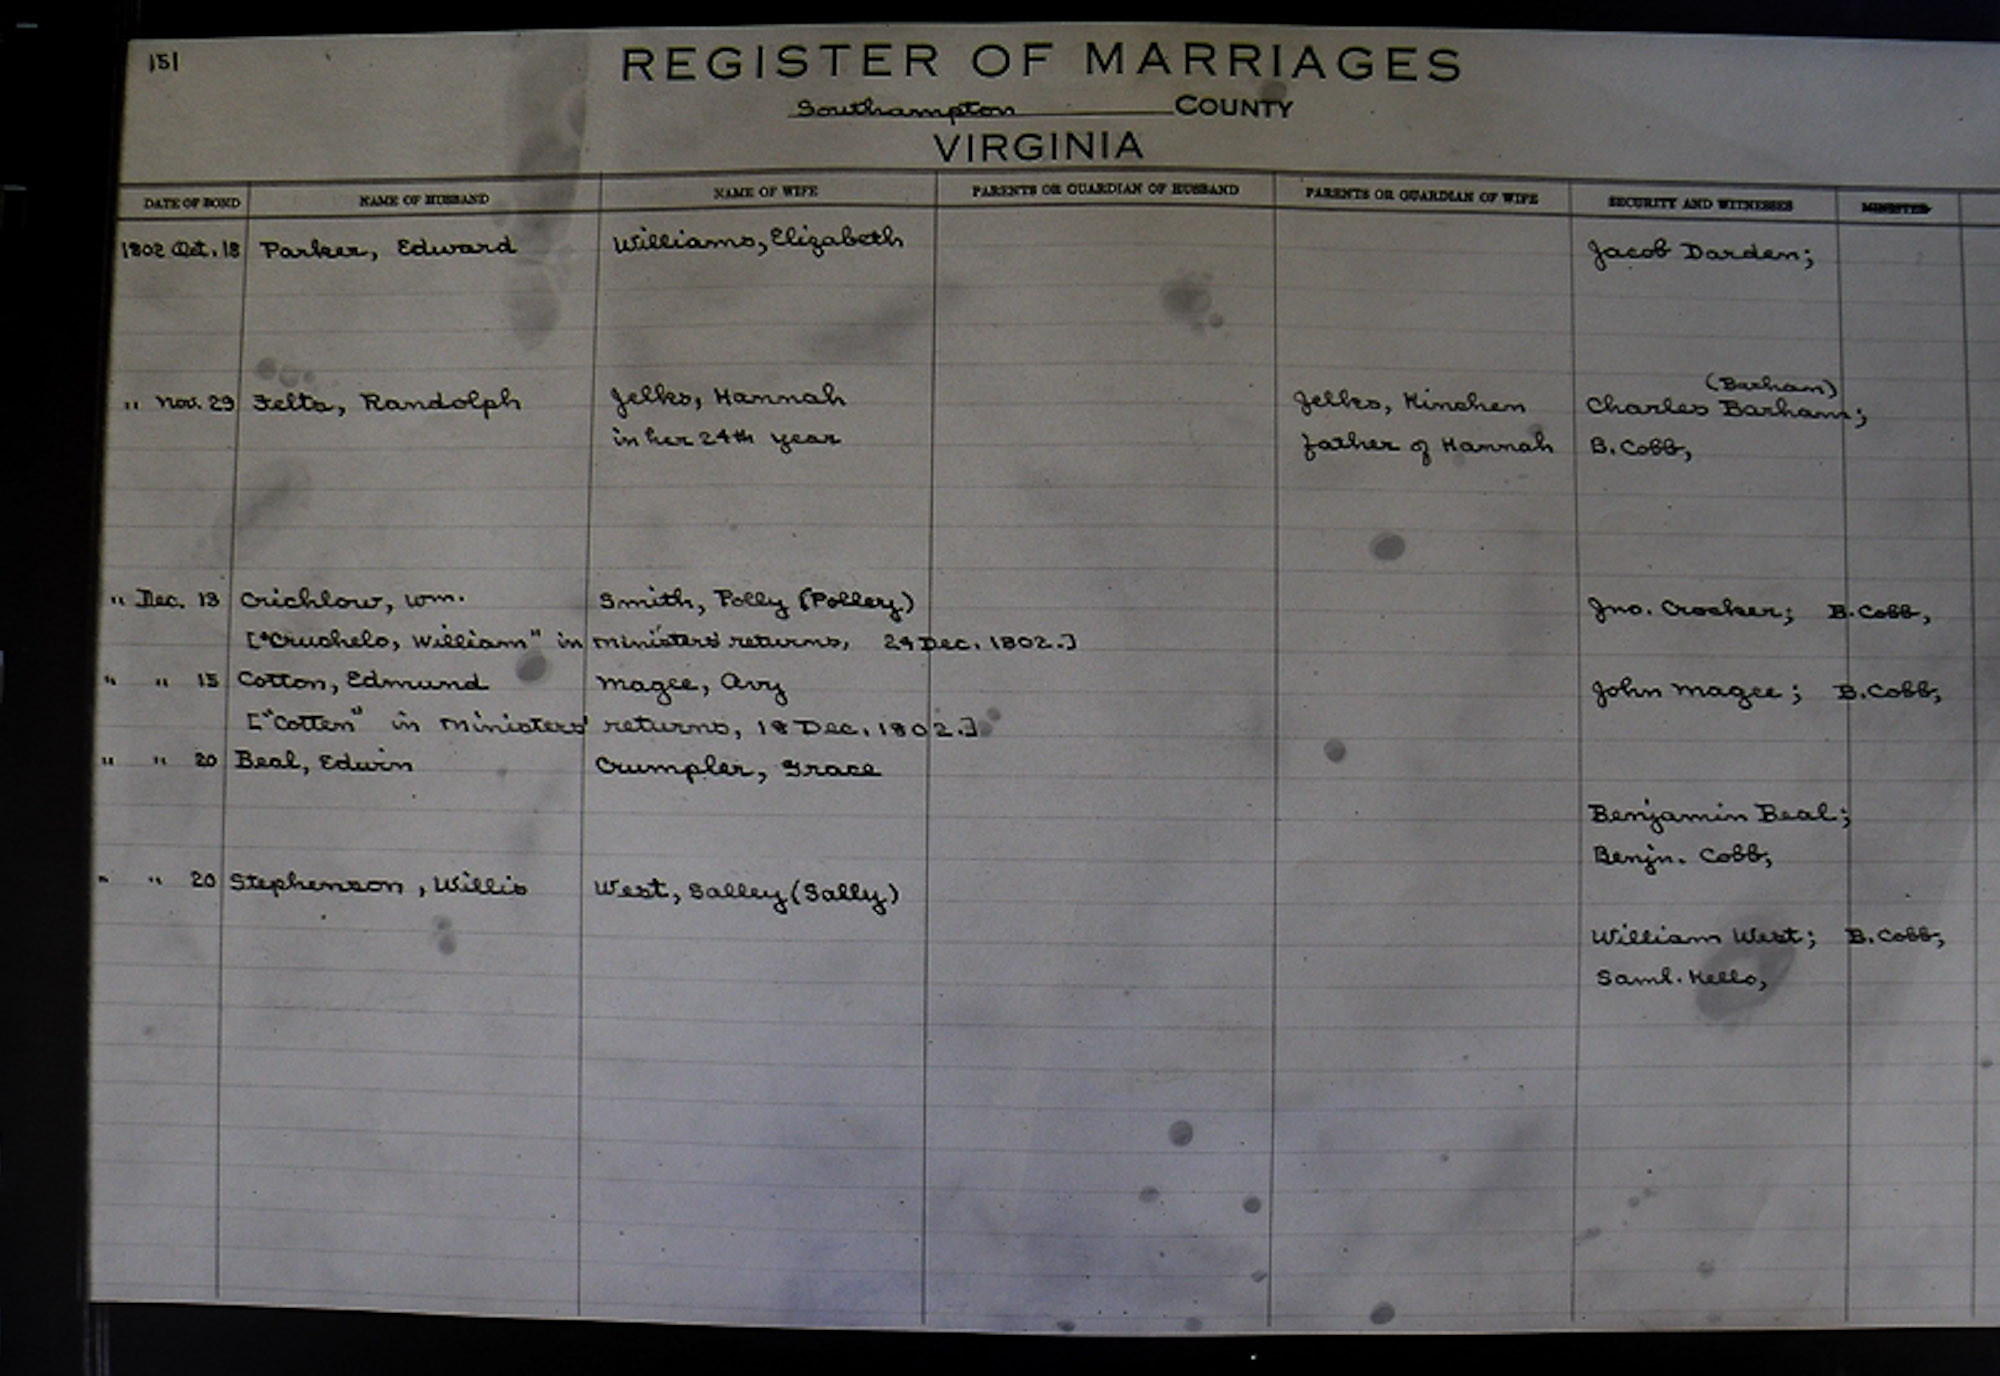 151
REGISTER OF MARRIAGES
Southampton COUNTY
VIRGINIA
DATE OF BOND NAME OF HUSBAND NAME OF WIFE PARENTS OR GUARDIAN OF HUSBAND PARENTS OR GUARDIAN OF WIFE SECURITY AND WITNESSES MINISTER
1802 Oct. 18 Parker, Edward Williams, Elizabeth Jacob Darden;
(Barham)
" Nov. 29 Felts, Randolph Jelks, Hannah Jelks, Kinchen Charles Barham;
in her 24th year father of Hannah B. Cobb,
" Dec. 13 Crichlow, Wm. Smith, Polly (Polley) Jno. Crocker; B. Cobb,
["Cruchelo, William" in ministers' returns, 24 Dec. 1802.]
" " 15 Cotton, Edmund Magee, Avy John Magee; B. Cobb,
["Cotten" in ministers' returns, 18 Dec. 1802.]
" " 20 Beal, Edwin Crumpler, Grace
Benjamin Beal;
Benjn. Cobb,
" " 20 Stephenson, Willis West, Salley (Sally)
William West; B. Cobb,
Saml. Kello,